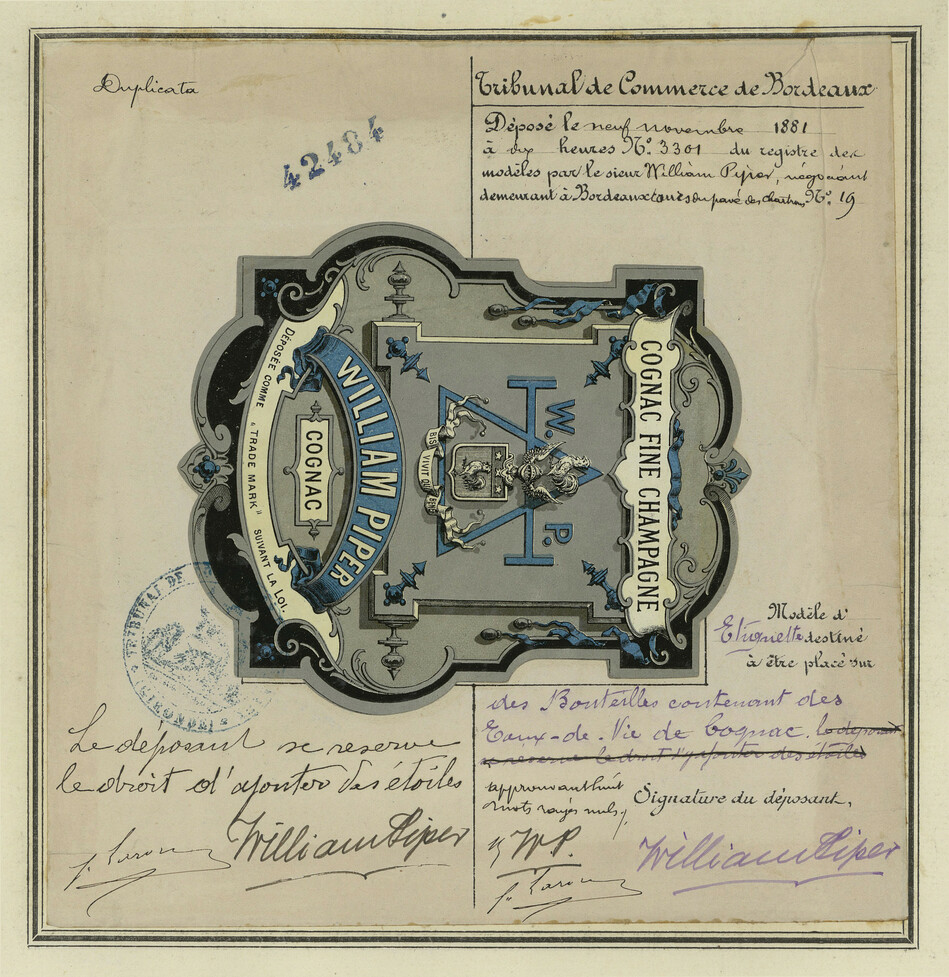 Duplicata
42484
Tribunal de Commerce de Bordeaux
Déposé le neuf novembre 1881
à dix heures N° 3301 du registre des
modèles par le sieur William Piper, négociant
demeurant à Bordeaux cours du pavé des Chartrons N° 19
DÉPOSÉE COMME "TRADE MARK" SUIVANT LA LOI.
WILLIAM PIPER
COGNAC
BIS VIVIT QUI BENE
W. P.
COGNAC FINE CHAMPAGNE
TRIBUNAL DE
GIRONDE
Modèle d'
Etiquette destiné
à être placé sur
des Bouteilles contenant des
Eaux-de-Vie de Cognac. le déposant
se reserve le droit d'ajouter des étoiles
Le déposant se reserve
le droit d'ajouter des étoiles
William Piper
approuvant huit
mots rayés nuls,
W P.
Signature du déposant,
William Piper